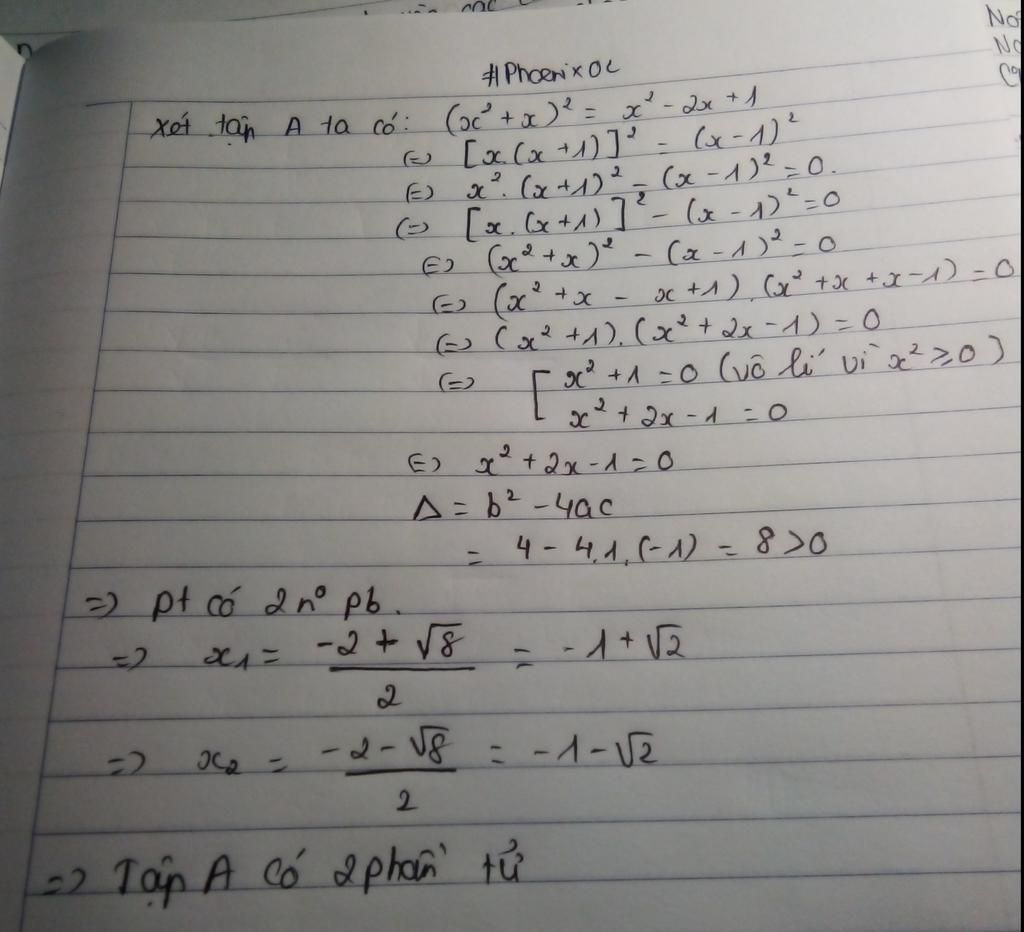 #PhoenixOL
No
No
Xét tập A ta có: (x² + x)² = x² - 2x + 1
(=) [x.(x+1)]² = (x-1)²
(=) x².(x+1)² - (x-1)² = 0.
(=) [x.(x+1)]² - (x-1)² = 0
(=) (x² + x)² - (x-1)² = 0
(=) (x² + x - x + 1).(x² + x + x - 1) = 0
(=) (x² + 1).(x² + 2x - 1) = 0
(=) [ x² + 1 = 0 (vô lí vì x² ≥ 0)
x² + 2x - 1 = 0
(=) x² + 2x - 1 = 0
Δ = b² - 4ac
= 4 - 4.1.(-1) = 8 > 0
=> pt có 2 nº pb.
=> x₁ = (-2 + √8)/2 = -1 + √2
=> x₂ = (-2 - √8)/2 = -1 - √2
=> Tập A có 2 phần tử